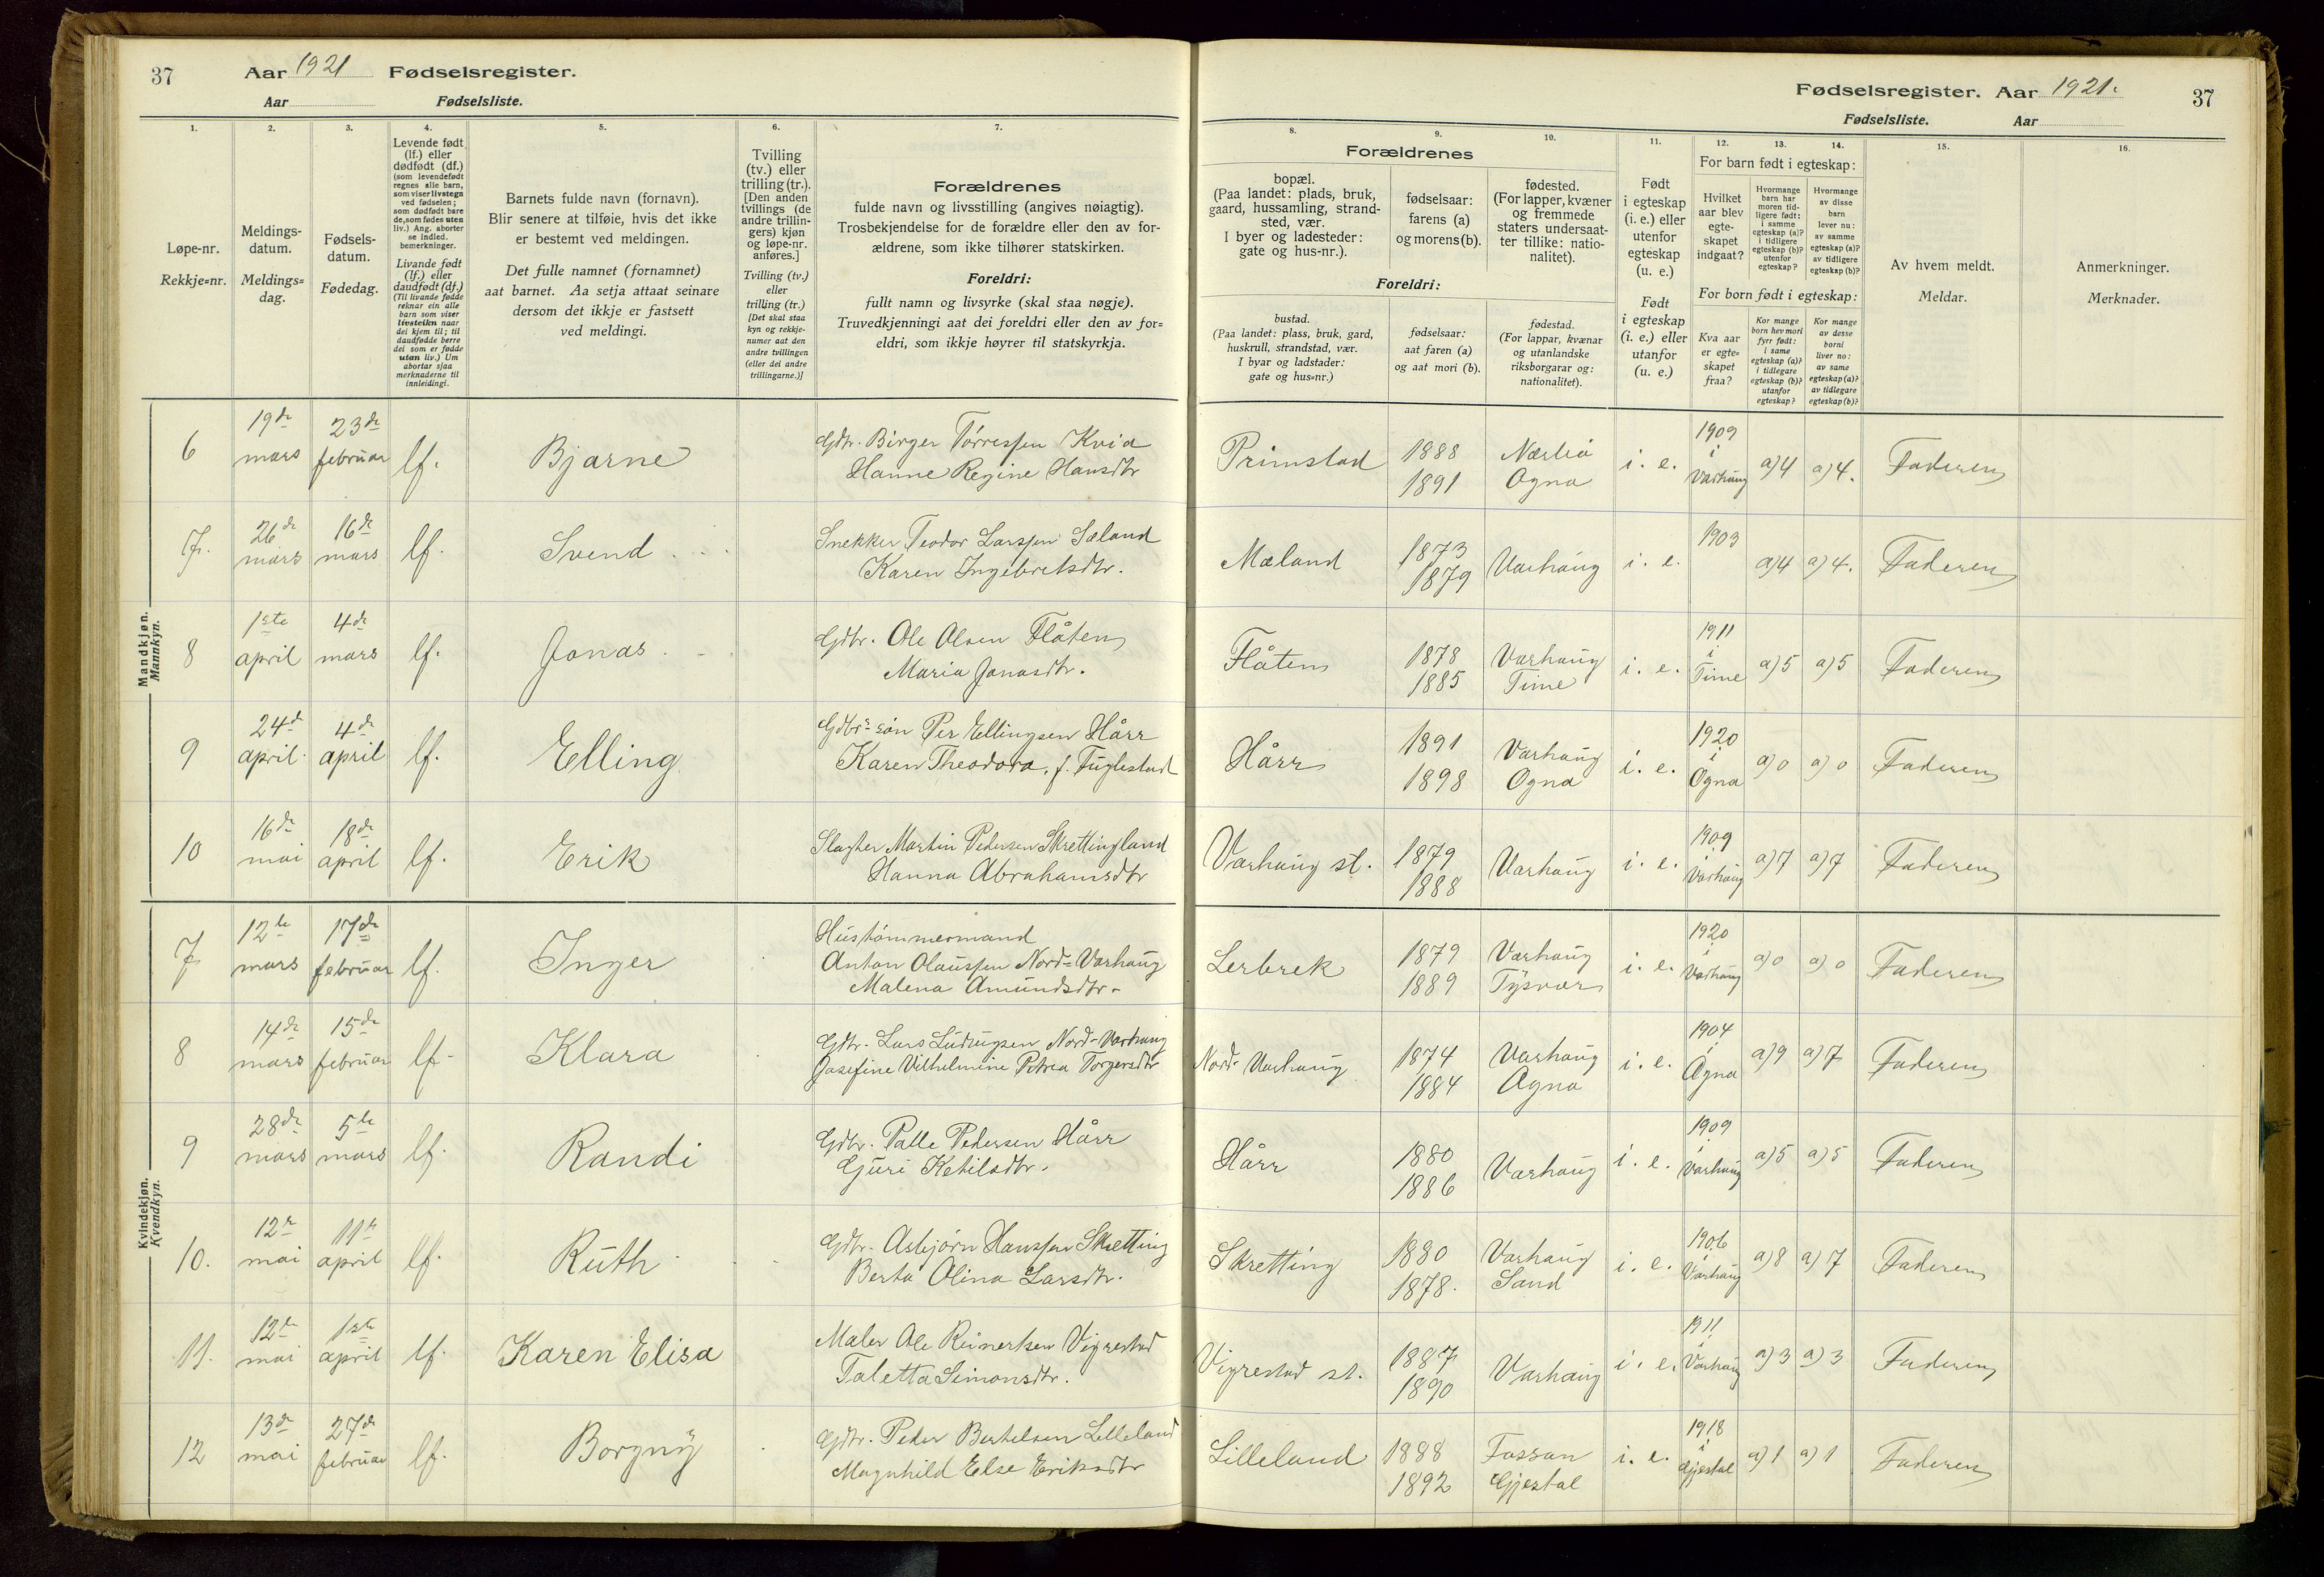 37
Aar 1921 Fødselsregister.
Aar Fødselsliste.
1.
Løpe-nr.
Rekkje=nr.
2.
Meldings-
datum.
Meldings=
dag.
3.
Fødsels-
datum.
Fødedag.
4.
Levende født
(lf.) eller
dødfødt (df.)
(som levendefødt
regnes alle barn,
som viser livstegn
ved fødselen;
som dødfødt bare
de, som fødes uten
liv.) Ang. aborter
se indled.
bemerkninger.
Livande født
(lf.) eller
daudfødt (df.)
(Til livande fødde
reknar ein alle
barn som viser
livsteikn naar
dei kjem til; til
daudfødde berre
dei som er fødde
utan liv.) Um
abortar sjaa
merknaderne til
innleidingi.
5.
Barnets fulde navn (fornavn).
Blir senere at tilføie, hvis det ikke
er bestemt ved meldingen.
Det fulle namnet (fornamnet)
aat barnet. Aa setja attaat seinare
dersom det ikkje er fastsett
ved meldingi.
6.
Tvilling
(tv.) eller
trilling (tr.).
[Den anden
tvillings (de
andre trillin-
gers) kjøn
og løpe-nr.
anføres.]
Tvilling (tv.)
eller
trilling (tr.)
[Det skal staa
kyn og rekkje-
numer aat den
andre tvillingen
(eller dei andre
trillingarne.)]
7.
Forældrenes
fulde navn og livsstilling (angives nøiagtig).
Trosbekjendelse for de forældre eller den av for-
ældrene, som ikke tilhører statskirken.
Foreldri:
fullt namn og livsyrke (skal staa nøgje).
Truvedkjenningi aat dei foreldri eller den av for=
eldri, som ikkje høyrer til statskyrkja.
Mandkjøn.
Mannkyn.
6 19de mars 23de februar lf. Bjarne Gdbr. Birger Tørressen Kvia
Hanne Regine Hansdtr
7. 26de mars 16de mars lf. Svend Snekker Teodor Larssen Sæland
Karen Ingebretsdtr.
8 1ste april 4de mars lf. Jonas Gdbr. Ole Olsen Flåten
Maria Jonasdtr.
9 24de april 4de april lf. Elling Gdbrs søn Per Ellingsen Hårr
Karen Theodora, f. Fuglestad
10 16de mai 18de april lf. Erik Slagter Martin Pedersen Skrettingland
Hanna Abrahamsdtr
Kvindekjøn.
Kvendkyn.
7 12te mars 17de februar lf. Inger Hustømmermand
Anton Olaussen Nord=Varhaug
Malena Amundsdtr.
8 14de mars 15de februar lf. Klara Gdbr. Lars Ludvigsen Nord-Varhaug
Josefine Vilhelmine Petrea Torgersdtr
9 28de mars 5te mars lf. Randi Gdbr. Palle Pedersen Hårr
Guri Ketilsdtr.
10. 12te mai 11te april lf. Ruth Gdbr. Asbjørn Hanssen Skretting
Berta Olina Larsdtr.
11. 12te mai 1ste april lf. Karen Elisa Maler Ole Reinertsen Vigrestad
Taletta Simonsdtr.
12 13de mai 27de februar lf. Borgny Gdbr. Peder Bertelsen Lilleland
Magnhild Else Eriksdtr
Fødselsregister. Aar 1921. 37
Fødselsliste. Aar
8.
Forældrenes
bopæl.
(Paa landet: plads, bruk,
gaard, hussamling, strand-
sted, vær.
I byer og ladesteder:
gate og hus-nr.).
Foreldri:
bustad.
(Paa landet: plass, bruk, gard,
huskrull, strandstad, vær.
I byar og ladstader:
gate og hus=nr.)
9.
fødselsaar:
farens (a)
og morens (b).
fødselsaar:
aat faren (a)
og aat mori (b).
10.
fødested.
(For lapper, kvæner
og fremmede
staters undersaat-
ter tillike: natio-
nalitet).
fødestad.
(For lappar, kvænar
og utanlandske
riksborgarar og:
nationalitet).
11.
Født
i egteskap
(i. e.) eller
utenfor
egteskap
(u. e.)
Født
i egteskap
(i. e.) eller
utanfor
(u. e.)
12.
For barn født i egteskap:
Hvilket
aar blev
egte-
skapet
indgaat?
For born født i egteskap:
Kva aar
er egte=
skapet
fraa?
13.
Hvormange
barn har
moren tid-
ligere født:
i samme
egteskap (a)?
i tidligere
egteskap (b)?
utenfor
egteskap?
Kor mange
born hev mori
fyrr født:
i same
egteskap (a)?
i tidlegare
egteskap (b)?
utanfor
egteskap?
14.
Hvormange
av disse
barn
lever nu:
av samme
egteskap (a)?
av tidligere
egteskap (b)?
Kor mange
av desse
borni
liver no:
av same
egteskap (a)?
av tidlegare
egteskap (b)?
15.
Av hvem meldt.
Meldar.
16.
Anmerkninger.
Merknader.
Primstad 1888 1891 Nærbø Ogna i. e. 1909 i Varhaug a) 4 a) 4. Faderen
Mæland 1873 1879 Varhaug i. e. 1903 a) 4 a) 4. Faderen
Flåten 1878 1885 Varhaug Time i. e. 1911 i Time a) 5 a) 5 Faderen
Hårr 1891 1898 Varhaug Ogna i. e. 1920 i Ogna a) 0 a) 0 Faderen
Varhaug st. 1879 1888 Varhaug i. e. 1909 i Varhaug a) 7 a) 7 Faderen
Lerbrek 1879 1889 Varhaug Tysvær i. e. 1920 i Varhaug a) 0 a) 0 Faderen
Nord-Varhaug 1874 1884 Varhaug Ogna i. e. 1904 i Ogna a) 9 a) 7 Faderen
Hårr 1880 1886 Varhaug i. e. 1909 i Varhaug a) 5 a) 5 Faderen
Skretting 1880 1878. Varhaug Sand i. e. 1906 i Varhaug a) 8 a) 7 Faderen
Vigrestad st. 1887 1890 Varhaug i. e. 1911 i Varhaug a) 3 a) 3 Faderen
Lilleland 1888 1892 Fossan Gjestal i. e. 1918 i Gjestal a) 1 a) 1 Faderen